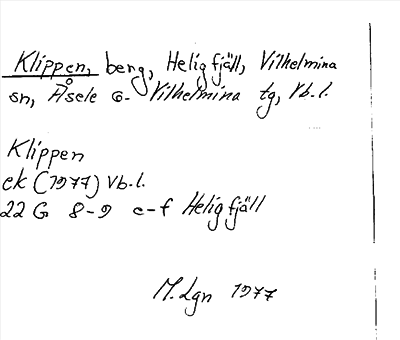 Klippen, berg, Heligfjäll, Vilhelmina
sn, Åsele o. Vilhelmina tg, Vb.l.
Klippen
ek (1977) Vb.l.
22 G 8-9 e-f Heligfjäll
M.Lgn 1977